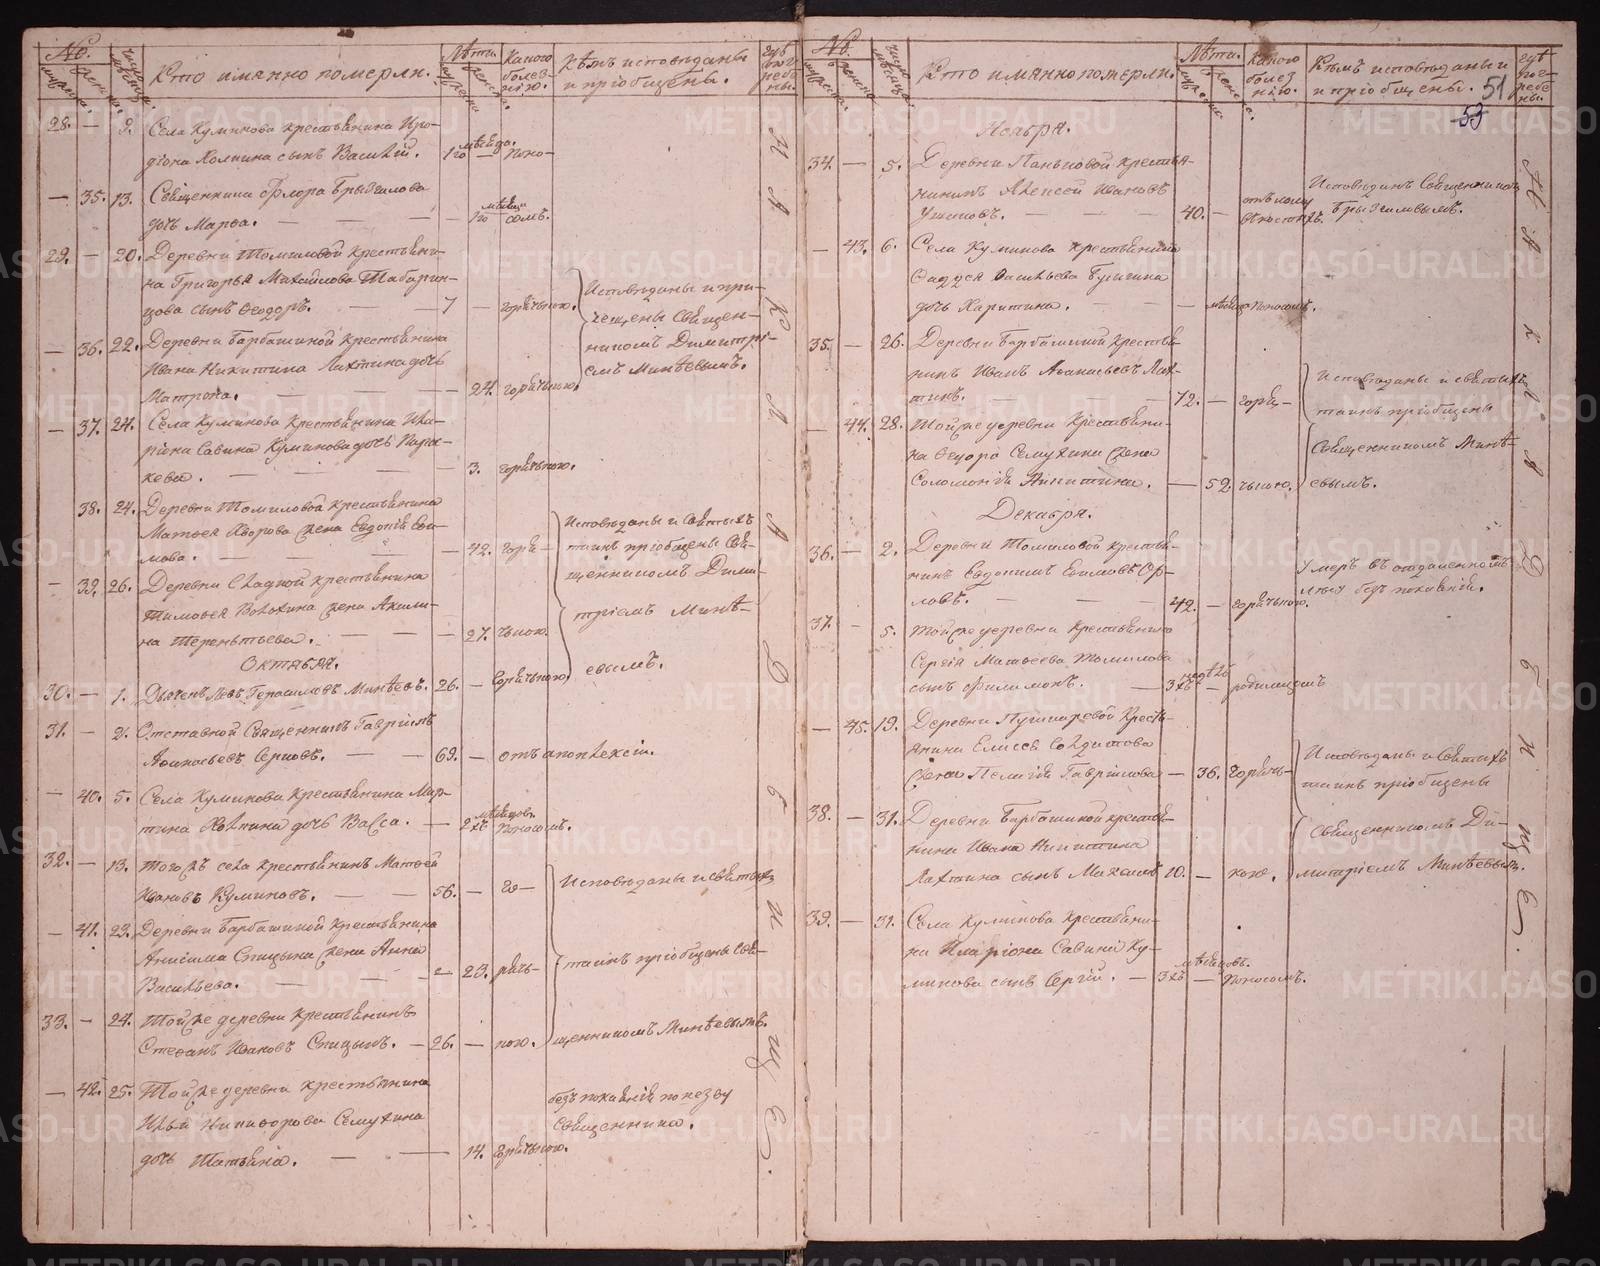 №.
мужеска.
женска.
число мѣсяца.
Кто имянно померли.
Лѣта.
мужска
женска.
Какою болезнію.
Кѣмъ исповѣданы
и пріобщены.
гдѣ погребены.
28. — 9. Села Куминова крестьянина Иро-
діона Колпина сынъ Василій. 1го мѣсяца. — поно-
— 35. 13. Священника Флора Брызгалова
дочь Марѳа. — — — 1го мѣсяца сомъ.
29. — 20. Деревни Томиловой крестьяни-
на Григорья Михайлова Табарин-
цова сынъ Ѳеодоръ. — 7 — горячкою.
Исповѣданы и при-
чащены Священ-
никомъ Димитрі-
емъ Минѣевымъ.
— 36. 22. Деревни Барбашиной крестьянина
Ивана Никитина Лахтина дочь
Матрона. — — 24. горячкою.
— 37. 24. Села Куминова крестьянина Ила-
ріона Савина Куминова дочь Пара-
кева. — — — 3. горячкою.
38. 24. Деревни Томиловой крестьянина
Матѳея Яворова жена Евдокія Еѳи-
мова. — — — 42. горя-
Исповѣданы и Святыхъ
таинъ пріобщены Свя-
щенникомъ Дими-
тріемъ Минѣ-
евымъ.
— 39. 26. Деревни Складной крестьянина
Тимоѳея Волохина жена Акили-
на Терентьева. — — 27. чкою.
Октября.
30. — 1. Дьяченъ Левъ Герасимовъ Минѣевъ. 26. — Горячкою.
31. — 2. Отставной Священникъ Гавріилъ
Аѳанасьевъ Серковъ. — — 69. — отъ апоплексіи.
— 40. 5. Села Куминова крестьянина Мар-
тина Колпина дочь Васса. — 2хъ мѣсяцовъ. Поносомъ.
32. — 13. Того же села крестьянинъ Матѳей
Ивановъ Куминовъ. — — 56. — го-
Исповѣданы и святыхъ
таинъ пріобщены Свя-
щенникомъ Минѣевымъ.
— 41. 23. Деревни Барбашиной крестьянина
Анисима Спицына жена Анна
Васильева. — — — 23. ряч-
33. — 24. Той же деревни крестьянинъ
Стефанъ Ивановъ Спицынъ. — 26. — кою.
— 42. 25. Той же деревни крестьянина
Ильи Никифорова Семухина
дочь Татьяна. — — 14. Горячкою.
безъ покаянія по незву
Священника.
На кладбище.
№.
мужеска.
женска
число мѣсяца.
Кто имянно померли.
Лѣта.
женска.
какою болезнію.
Кѣмъ исповѣданы и
и пріобщены.
51
53
гдѣ погребены.
Ноября.
34. — 5. Деревни Паньковой крестья-
нинъ Алексей Ивановъ
Ушаковъ. — — — 40. —
Исповѣданъ Священникомъ
Брызгаловымъ.
— 43. 6. Села Куминова крестьянина
Ѳаддея Васильева Бушкина
дочь Харитина. — — — мѣсяца Поносомъ.
35. — 26. Деревни Барбашиной крестья-
нинъ Иванъ Аѳанасьевъ Лах-
тинъ. — — — 72. — горя-
Исповѣданы и святыхъ
таинъ пріобщены
Священникомъ Минѣ-
евымъ.
— 44. 28. Той же деревни крестьяни-
на Ѳедора Семухина жена
Соломонія Никитина. — 52. чкою.
Декабря.
36. — 2. Деревни Томиловой крестья-
нинъ Евдокимъ Еѳимовъ Ор-
ловъ. — — — 42. — горячкою.
Умеръ въ отдаленномъ
лѣсу безъ покаянія.
37. — 5. Той же деревни крестьянина
Сергія Матѳеева Томилова
сынъ Филимонъ. — 3хъ недѣль — родимцемъ
— 45. 19. Деревни Пушкаревой кресть-
янина Елисея Солдатова
жена Пелагія Гаврилова — 36. Горяч-
Исповѣданы и Святыхъ
таинъ пріобщены
Священникомъ Ди-
митріемъ Минѣевымъ.
38. — 31. Деревни Барбашиной крестья-
нина Ивана Никитина
Лахтина сынъ Михаилъ 10. — кою.
39. — 31. Села Куминова крестьяни-
на Иларіона Савина Ку-
минова сынъ Сергій. — 3хъ мѣсяцовъ. — Поносомъ.
На кладбище.
METRIKI.GASO-URAL.RU